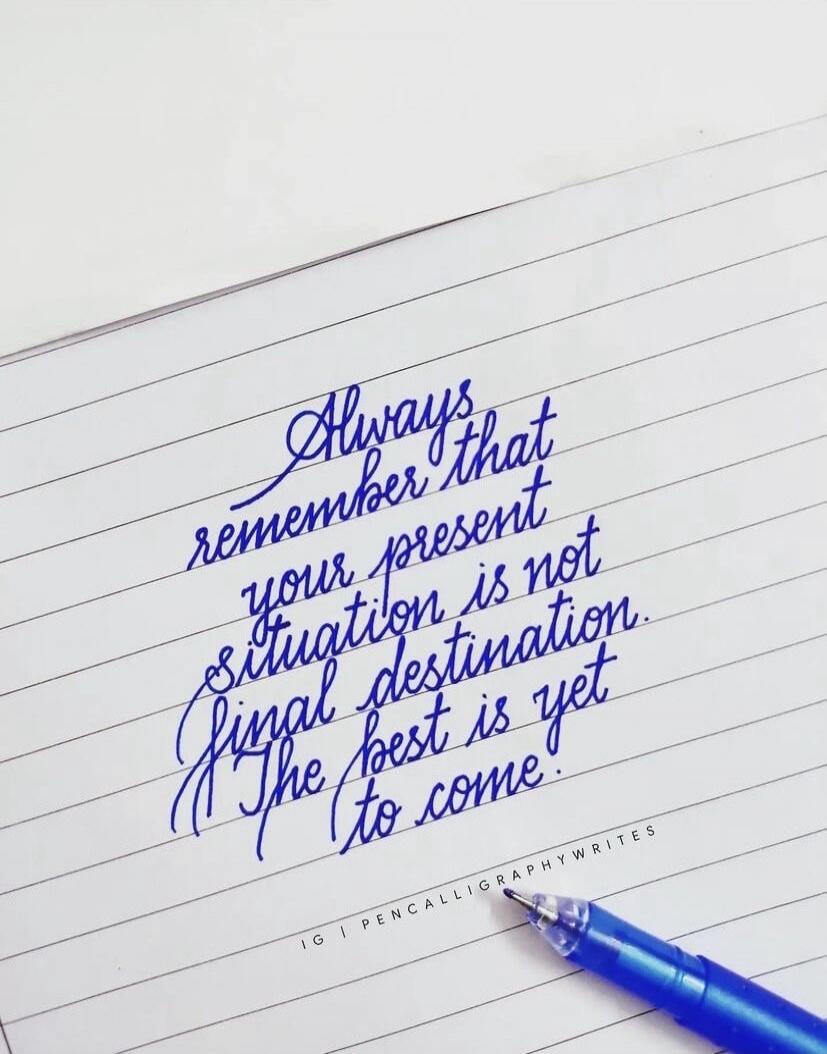 Always
remember that
your present
situation is not
final destination.
The best is yet
to come.
IG | PENCALLIGRAPHYWRITES